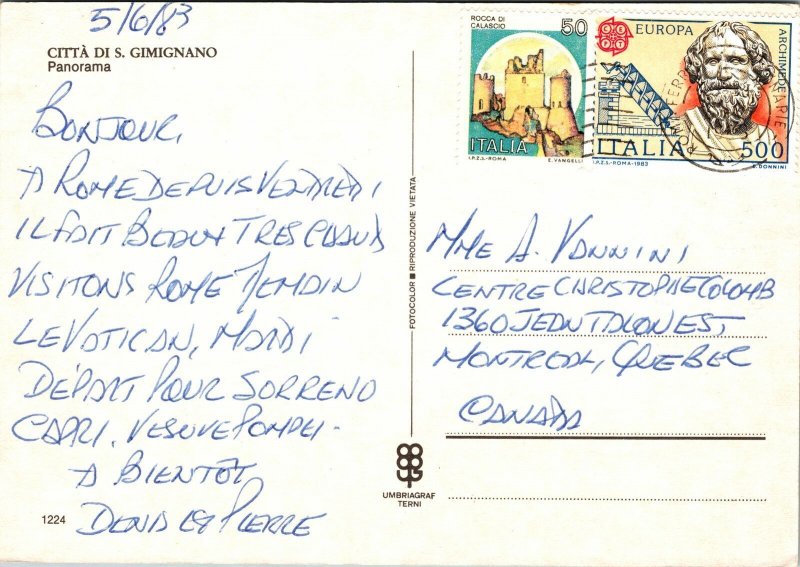 5/6/83
CITTÀ DI S. GIMIGNANO
Panorama
BONJOUR,
A ROME DEPUIS VENDREDI
IL FAIT BEAU & TRES CHAUD
VISITONS ROME DEMAIN
LE VATICAN, MARDI
DÉPART POUR SORRENO
CAPRI. VESUVE POMPEI-
A BIENTOT
DENIS ET PIERRE
1224
FOTOCOLOR ■ RIPRODUZIONE VIETATA
UMBRIAGRAF
TERNI
ROCCA DI
CALASCIO
50
ITALIA
I.P.Z.S.-ROMA E. VANGELLI
CEPT
EUROPA
ARCHIMEDE
ITALIA 500
I.P.Z.S.-ROMA-1983 E. DONNINI
MME A. VANNINI
CENTRE CHRISTOPHE COLOMB
1360 JEAN TALON EST,
MONTREAL, QUEBEC
CANADA